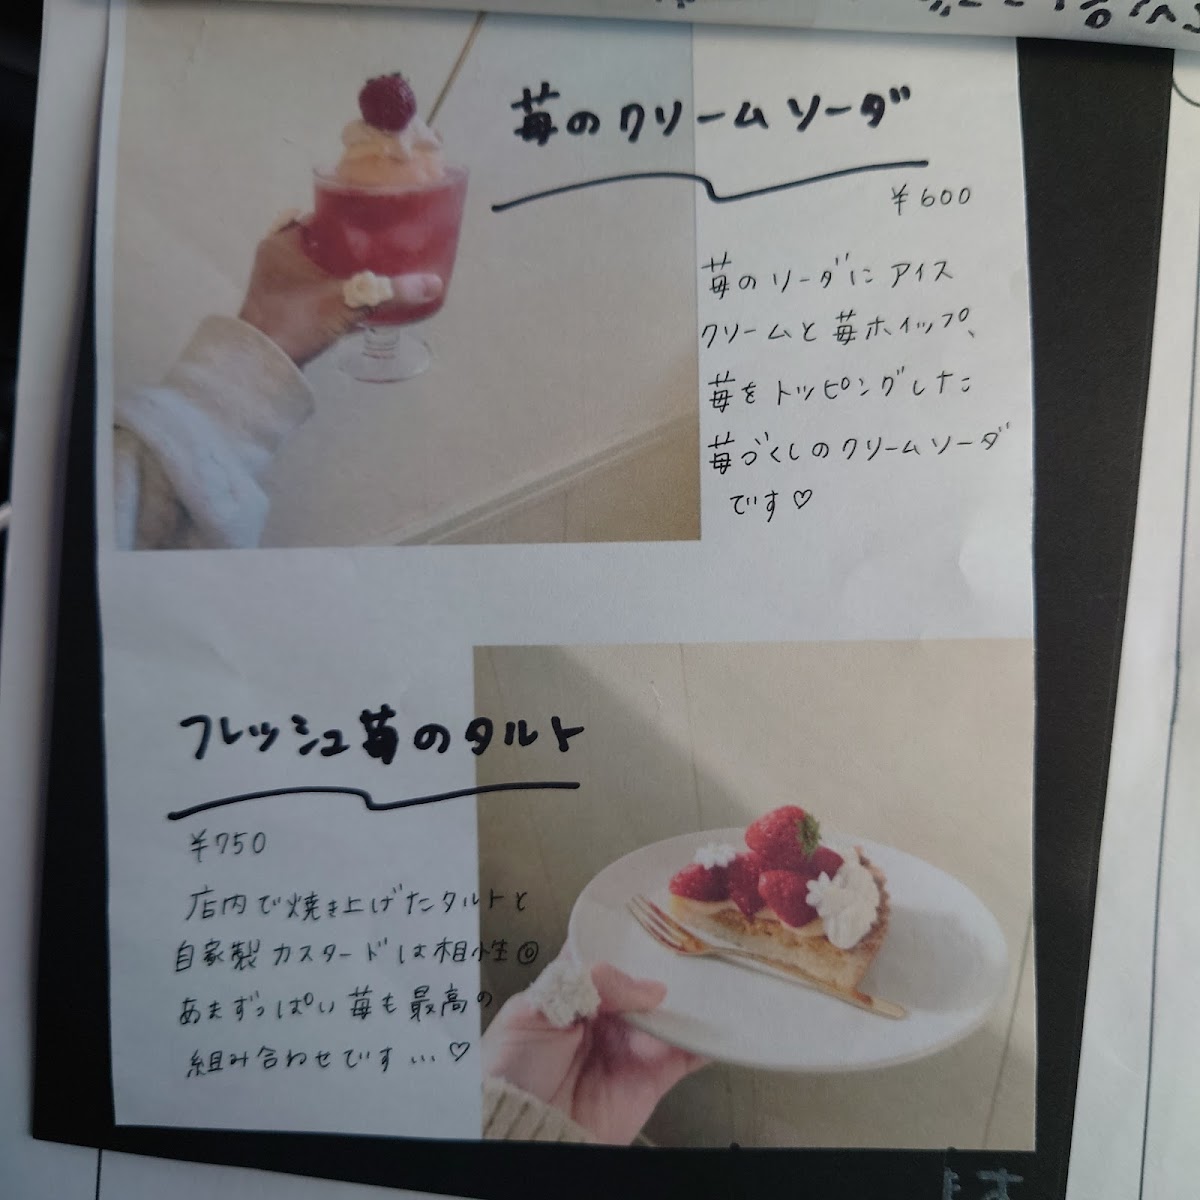 苺のクリームソーダ
¥600
苺のソーダにアイス
クリームと苺ホイップ、
苺をトッピングした
苺づくしのクリームソーダ
です♡
フレッシュ苺のタルト
¥750
店内で焼き上げたタルトと
自家製カスタードは相性◎
あまずっぱい苺も最高の
組み合わせです…♡
ます